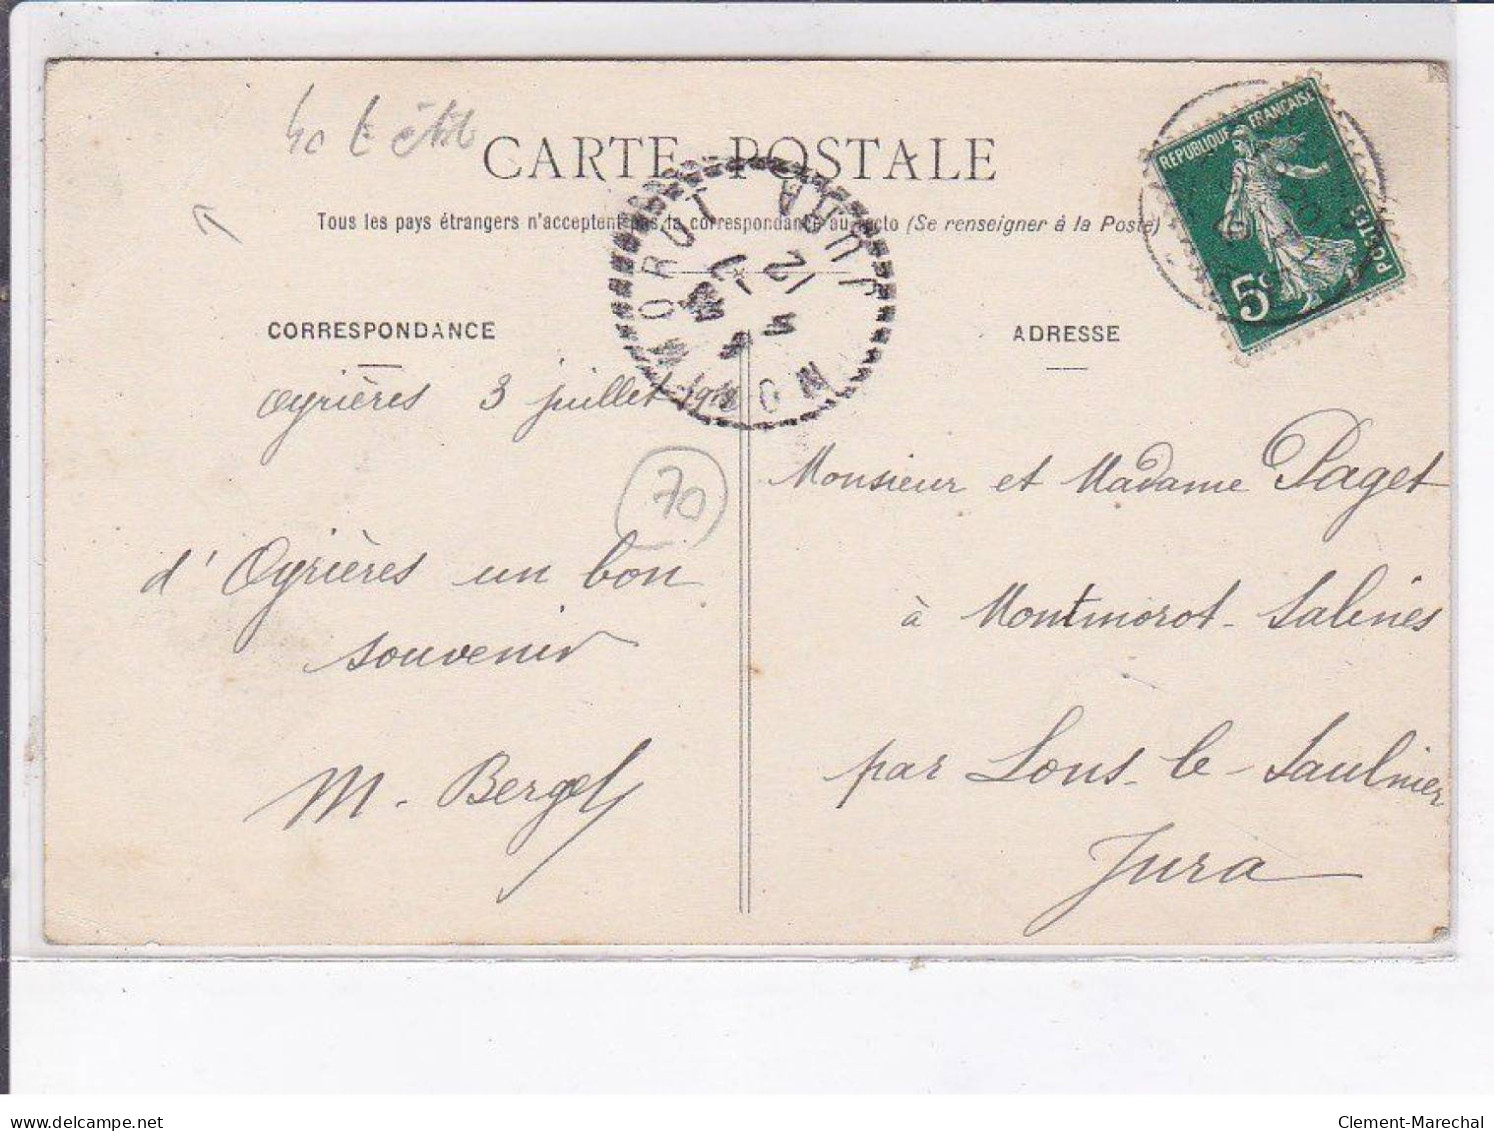 CARTE POSTALE
Tous les pays étrangers n'acceptent pas la correspondance au recto (Se renseigner à la Poste)
REPUBLIQUE FRANÇAISE
POSTES
5c
MONTMOROT
JURA
CORRESPONDANCE
ADRESSE
Oyrières 3 juillet
70
d'Oyrières un bon
souvenir
M. Berget
Monsieur et Madame Paget
à Montmorot-Salines
par Lons-le-Saulnier
Jura
delcampe.net
Clement-Marechal